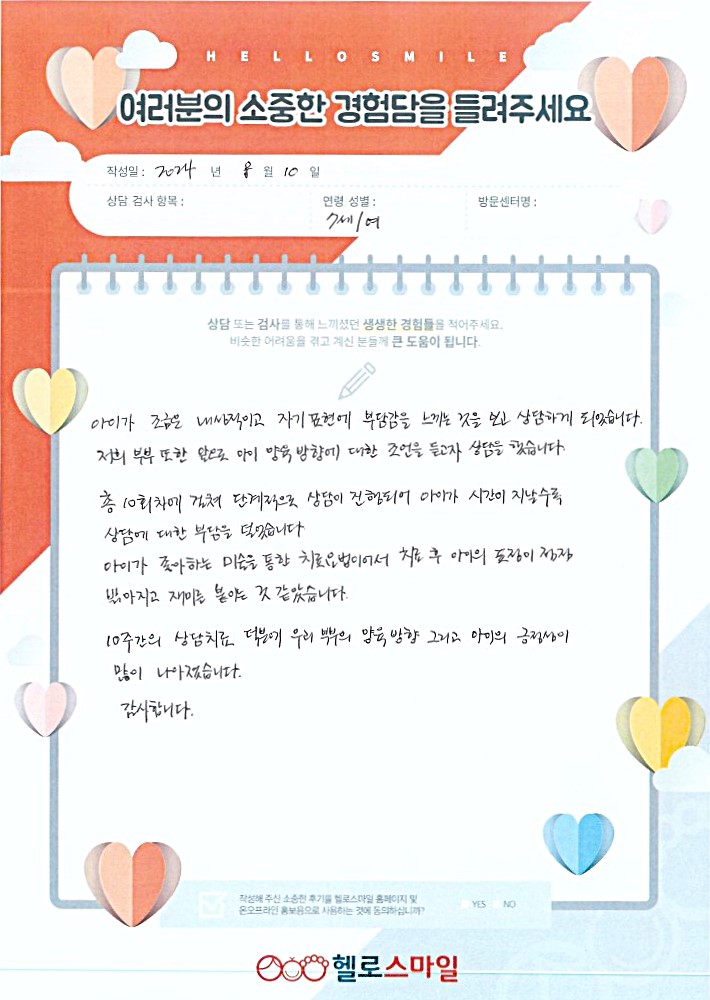 HELLOSMILE
여러분의 소중한 경험담을 들려주세요
작성일 : 2024 년 8 월 10 일
상담 검사 항목 : 연령 성별 : 방문센터명 :
7세/여
상담 또는 검사를 통해 느끼셨던 생생한 경험들을 적어주세요.
비슷한 어려움을 겪고 계신 분들께 큰 도움이 됩니다.
아이가 조금은 내성적이고 자기표현에 부담감을 느끼는 것을 보고 상담하게 되었습니다.
저희 부부 또한 앞으로 아이 양육 방향에 대한 조언을 듣고자 상담을 했습니다.
총 10회차에 걸쳐 단계적으로 상담이 진행되어 아이가 시간이 지날수록
상담에 대한 부담을 덜었습니다
아이가 좋아하는 미술을 통한 치료요법이어서 치료 후 아이의 표정이 점점
밝아지고 재미를 붙이는 것 같았습니다.
10주간의 상담치료 덕분에 우리 부부의 양육 방향 그리고 아이의 긍정성이
많이 나아졌습니다.
감사합니다.
작성해 주신 소중한 후기를 헬로스마일 홈페이지 및
온오프라인 홍보용으로 사용하는 것에 동의하십니까? YES NO
헬로스마일